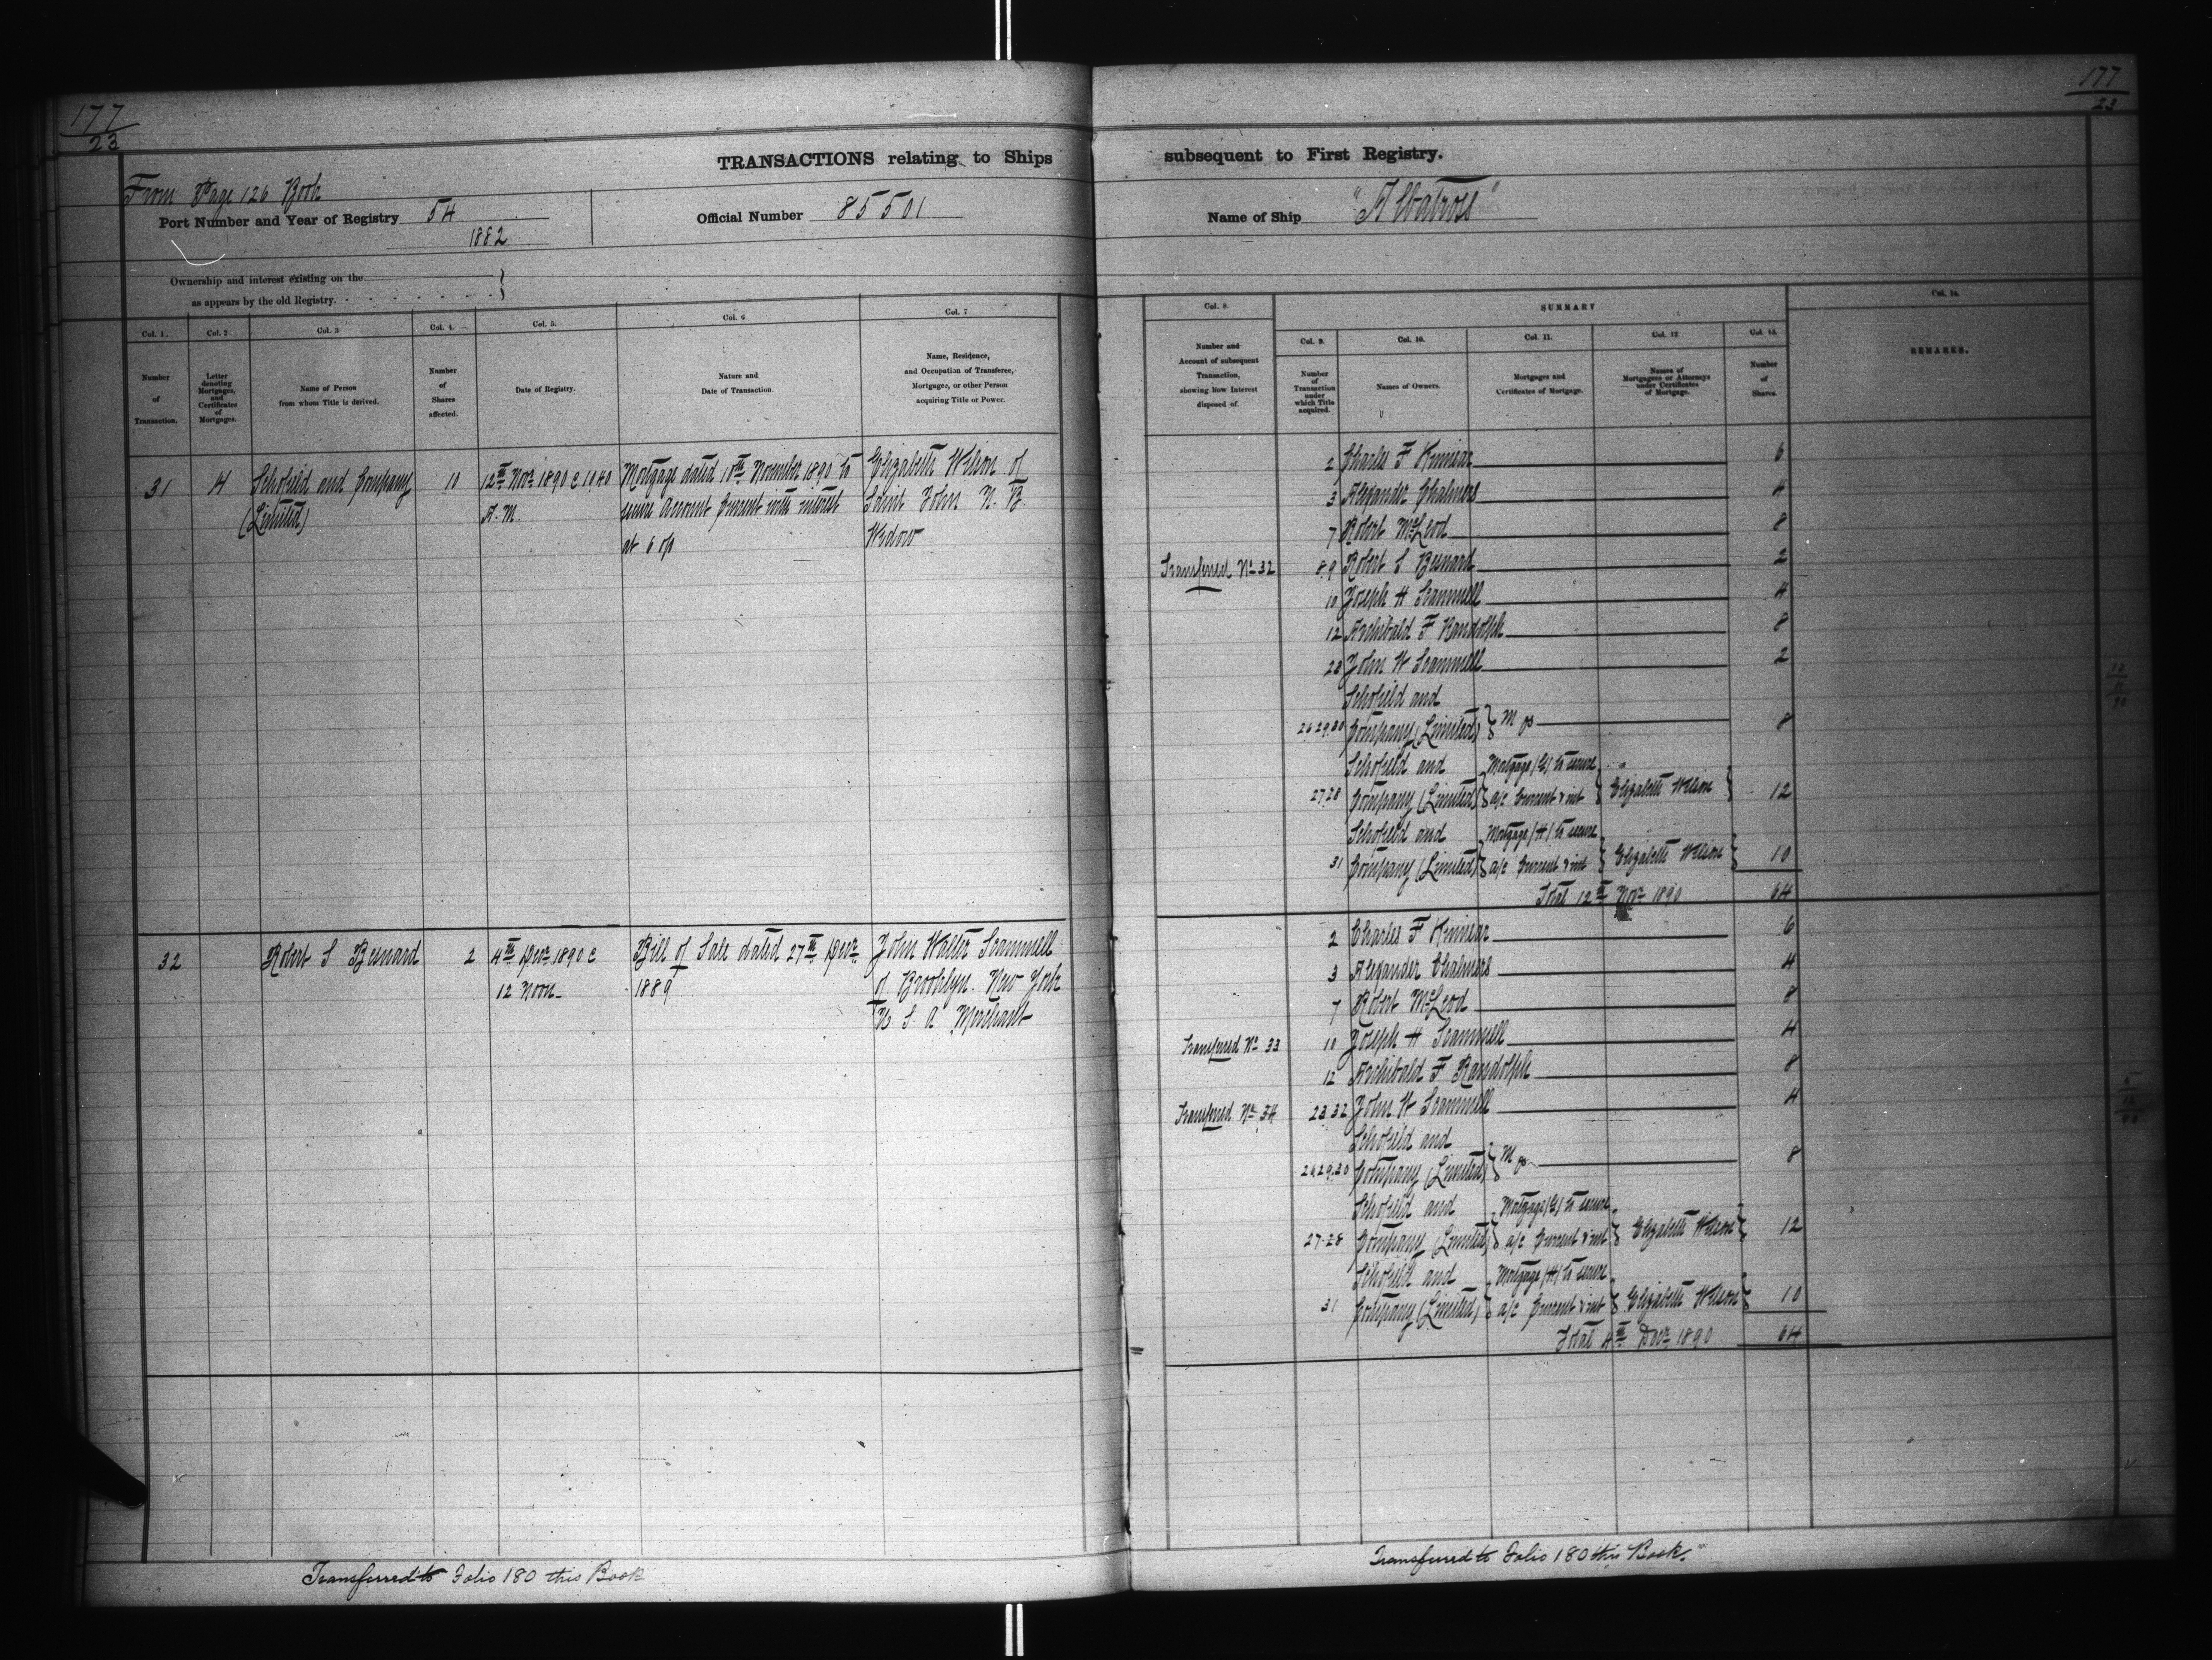 177
23
TRANSACTIONS relating to Ships
From Page 126 Book
Port Number and Year of Registry 54
1882
Official Number 85501
Ownership and interest existing on the
as appears by the old Registry.
Col. 1.
Number
of
Transaction.
Col. 2
Letter
denoting
Mortgages,
and
Certificates
of
Mortgages.
Col. 3
Name of Person
from whom Title is derived.
Col. 4.
Number
of
Shares
affected.
Col. 5.
Date of Registry.
Col. 6
Nature and
Date of Transaction.
Col. 7
Name, Residence,
and Occupation of Transferee,
Mortgagee, or other Person
acquiring Title or Power.
31 H Schofield and Company 10 12th Novr 1890 @ 10 40 Mortgage dated 10th November 1890 to Elizabeth Wilson of
(Limited) A. M. secure account Current with interest Saint John N. B.
at 6 o/o Widow
32 Robert S Besnard 2 4th Decr 1890 @ Bill of Sale dated 27th Decr John Walter Scammell
12 Noon 1889 of Brooklyn New York
U S A Merchant
Transferred to Folio 180 this Book
177
23
subsequent to First Registry.
Name of Ship "Albatross"
Col. 8
Number and
Account of subsequent
Transaction,
showing how Interest
disposed of.
SUMMARY
Col. 9.
Number
of
Transaction
under
which Title
acquired.
Col. 10.
Names of Owners.
Col. 11.
Mortgages and
Certificates of Mortgage.
Col. 12
Names of
Mortgagees or Attorneys
under Certificates
of Mortgage.
Col. 13.
Number
of
Shares.
Col. 14.
REMARKS.
2 Charles F Kinnear 6
3 Alexander Chalmers 4
7 Robert McLeod 8
Transferred No 32 8.9 Robert S Besnard 2
10 Joseph H Scammell 4
12 Archibald F Randolph 8
23 John W Scammell 2
Schofield and
26.29.30 Company (Limited) 8
Schofield and Mortgage (G) to secure
27.28 Company (Limited) a/c Current & int Elizabeth Wilson 12
Schofield and Mortgage (H) to secure
31 Company (Limited) a/c Current & int Elizabeth Wilson 10
Total 12th Novr 1890 64
2 Charles F Kinnear 6
3 Alexander Chalmers 4
7 Robert McLeod 8
Transferred No 33 10 Joseph H Scammell 4
12 Archibald F Randolph 8
Transferred No 34 23.32 John W Scammell 4
Schofield and
26.29.30 Company (Limited) 8
Schofield and Mortgage (G) to secure
27.28 Company (Limited) a/c Current & int Elizabeth Wilson 12
Schofield and Mortgage (H) to secure
31 Company (Limited) a/c Current & int Elizabeth Wilson 10
Total 4th Decr 1890 64
Transferred to Folio 180 this Book.